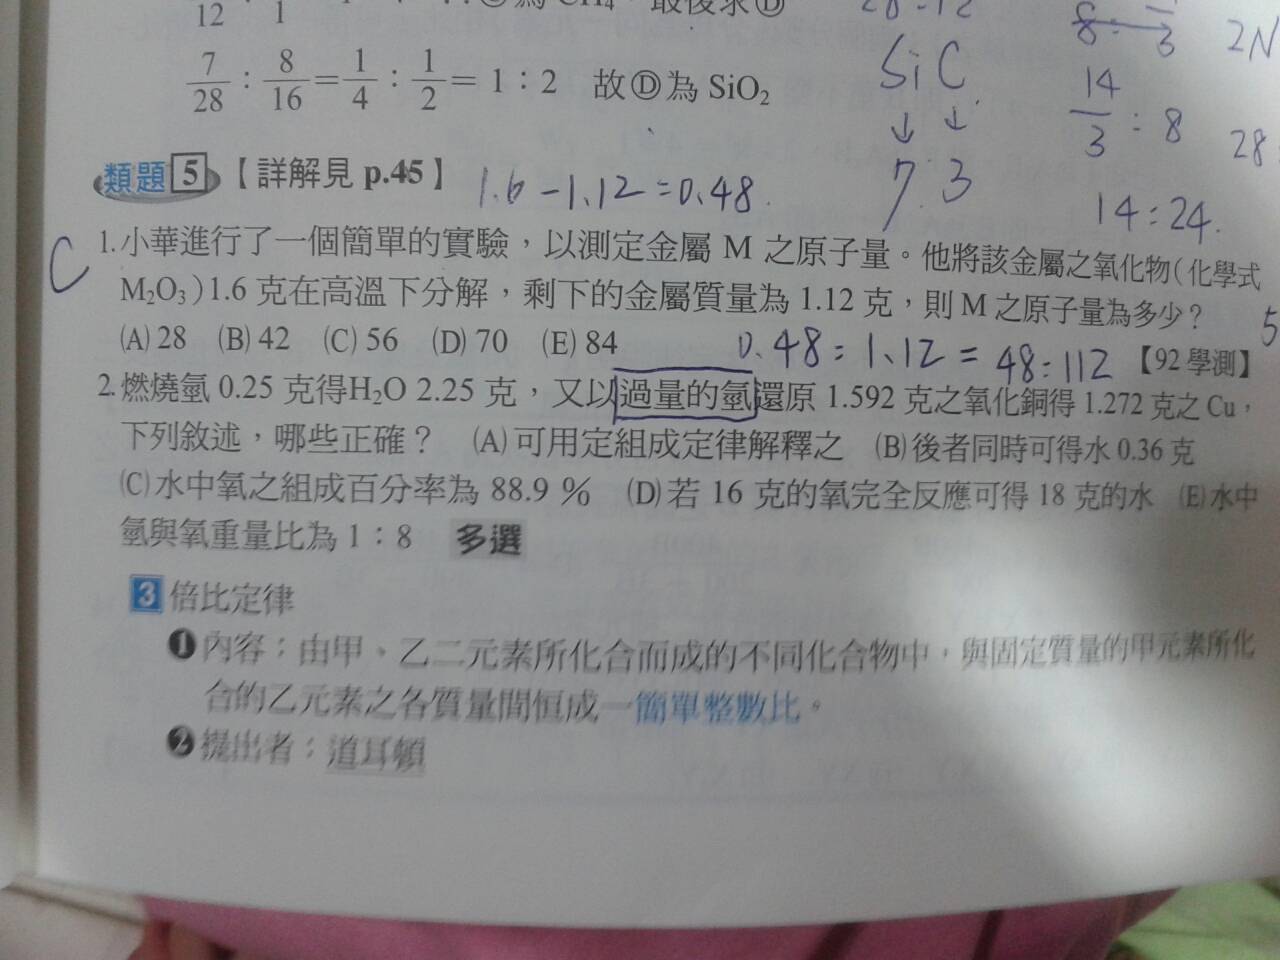 12 1 為 CH₄,最後求Ⓓ
7/28 : 8/16 = 1/4 : 1/2 = 1:2 故Ⓓ為 SiO₂
28:12
Si C
↓ ↓
7:3
8: 3
14/3 : 8
14:24.
2N
28
類題 5 【詳解見 p.45】 1.6-1.12=0.48.
C 1. 小華進行了一個簡單的實驗,以測定金屬 M 之原子量。他將該金屬之氧化物(化學式
M₂O₃)1.6 克在高溫下分解,剩下的金屬質量為 1.12 克,則 M 之原子量為多少?
(A) 28 (B) 42 (C) 56 (D) 70 (E) 84
0.48:1.12=48:112 【92 學測】
5
2. 燃燒氫 0.25 克得H₂O 2.25 克,又以過量的氫還原 1.592 克之氧化銅得 1.272 克之 Cu,
下列敘述,哪些正確? (A) 可用定組成定律解釋之 (B) 後者同時可得水 0.36 克
(C) 水中氧之組成百分率為 88.9 % (D) 若 16 克的氧完全反應可得 18 克的水 (E) 水中
氫與氧重量比為 1:8 多選
3 倍比定律
❶ 內容:由甲、乙二元素所化合而成的不同化合物中,與固定質量的甲元素所化
合的乙元素之各質量間恒成一簡單整數比。
❷ 提出者:道耳頓